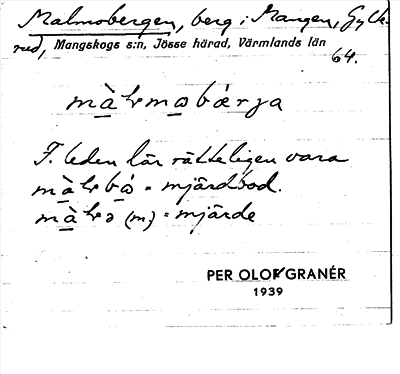 Malmobergen, berg i Mangen, Gylke-
rud, Mangskogs s:n, Jösse härad, Värmlands län
64.
màlmobǽrja
F. leden lär rätteligen vara
bó = mjärdbod.
(m) = mjärde
PER OLOF GRANÉR
1939